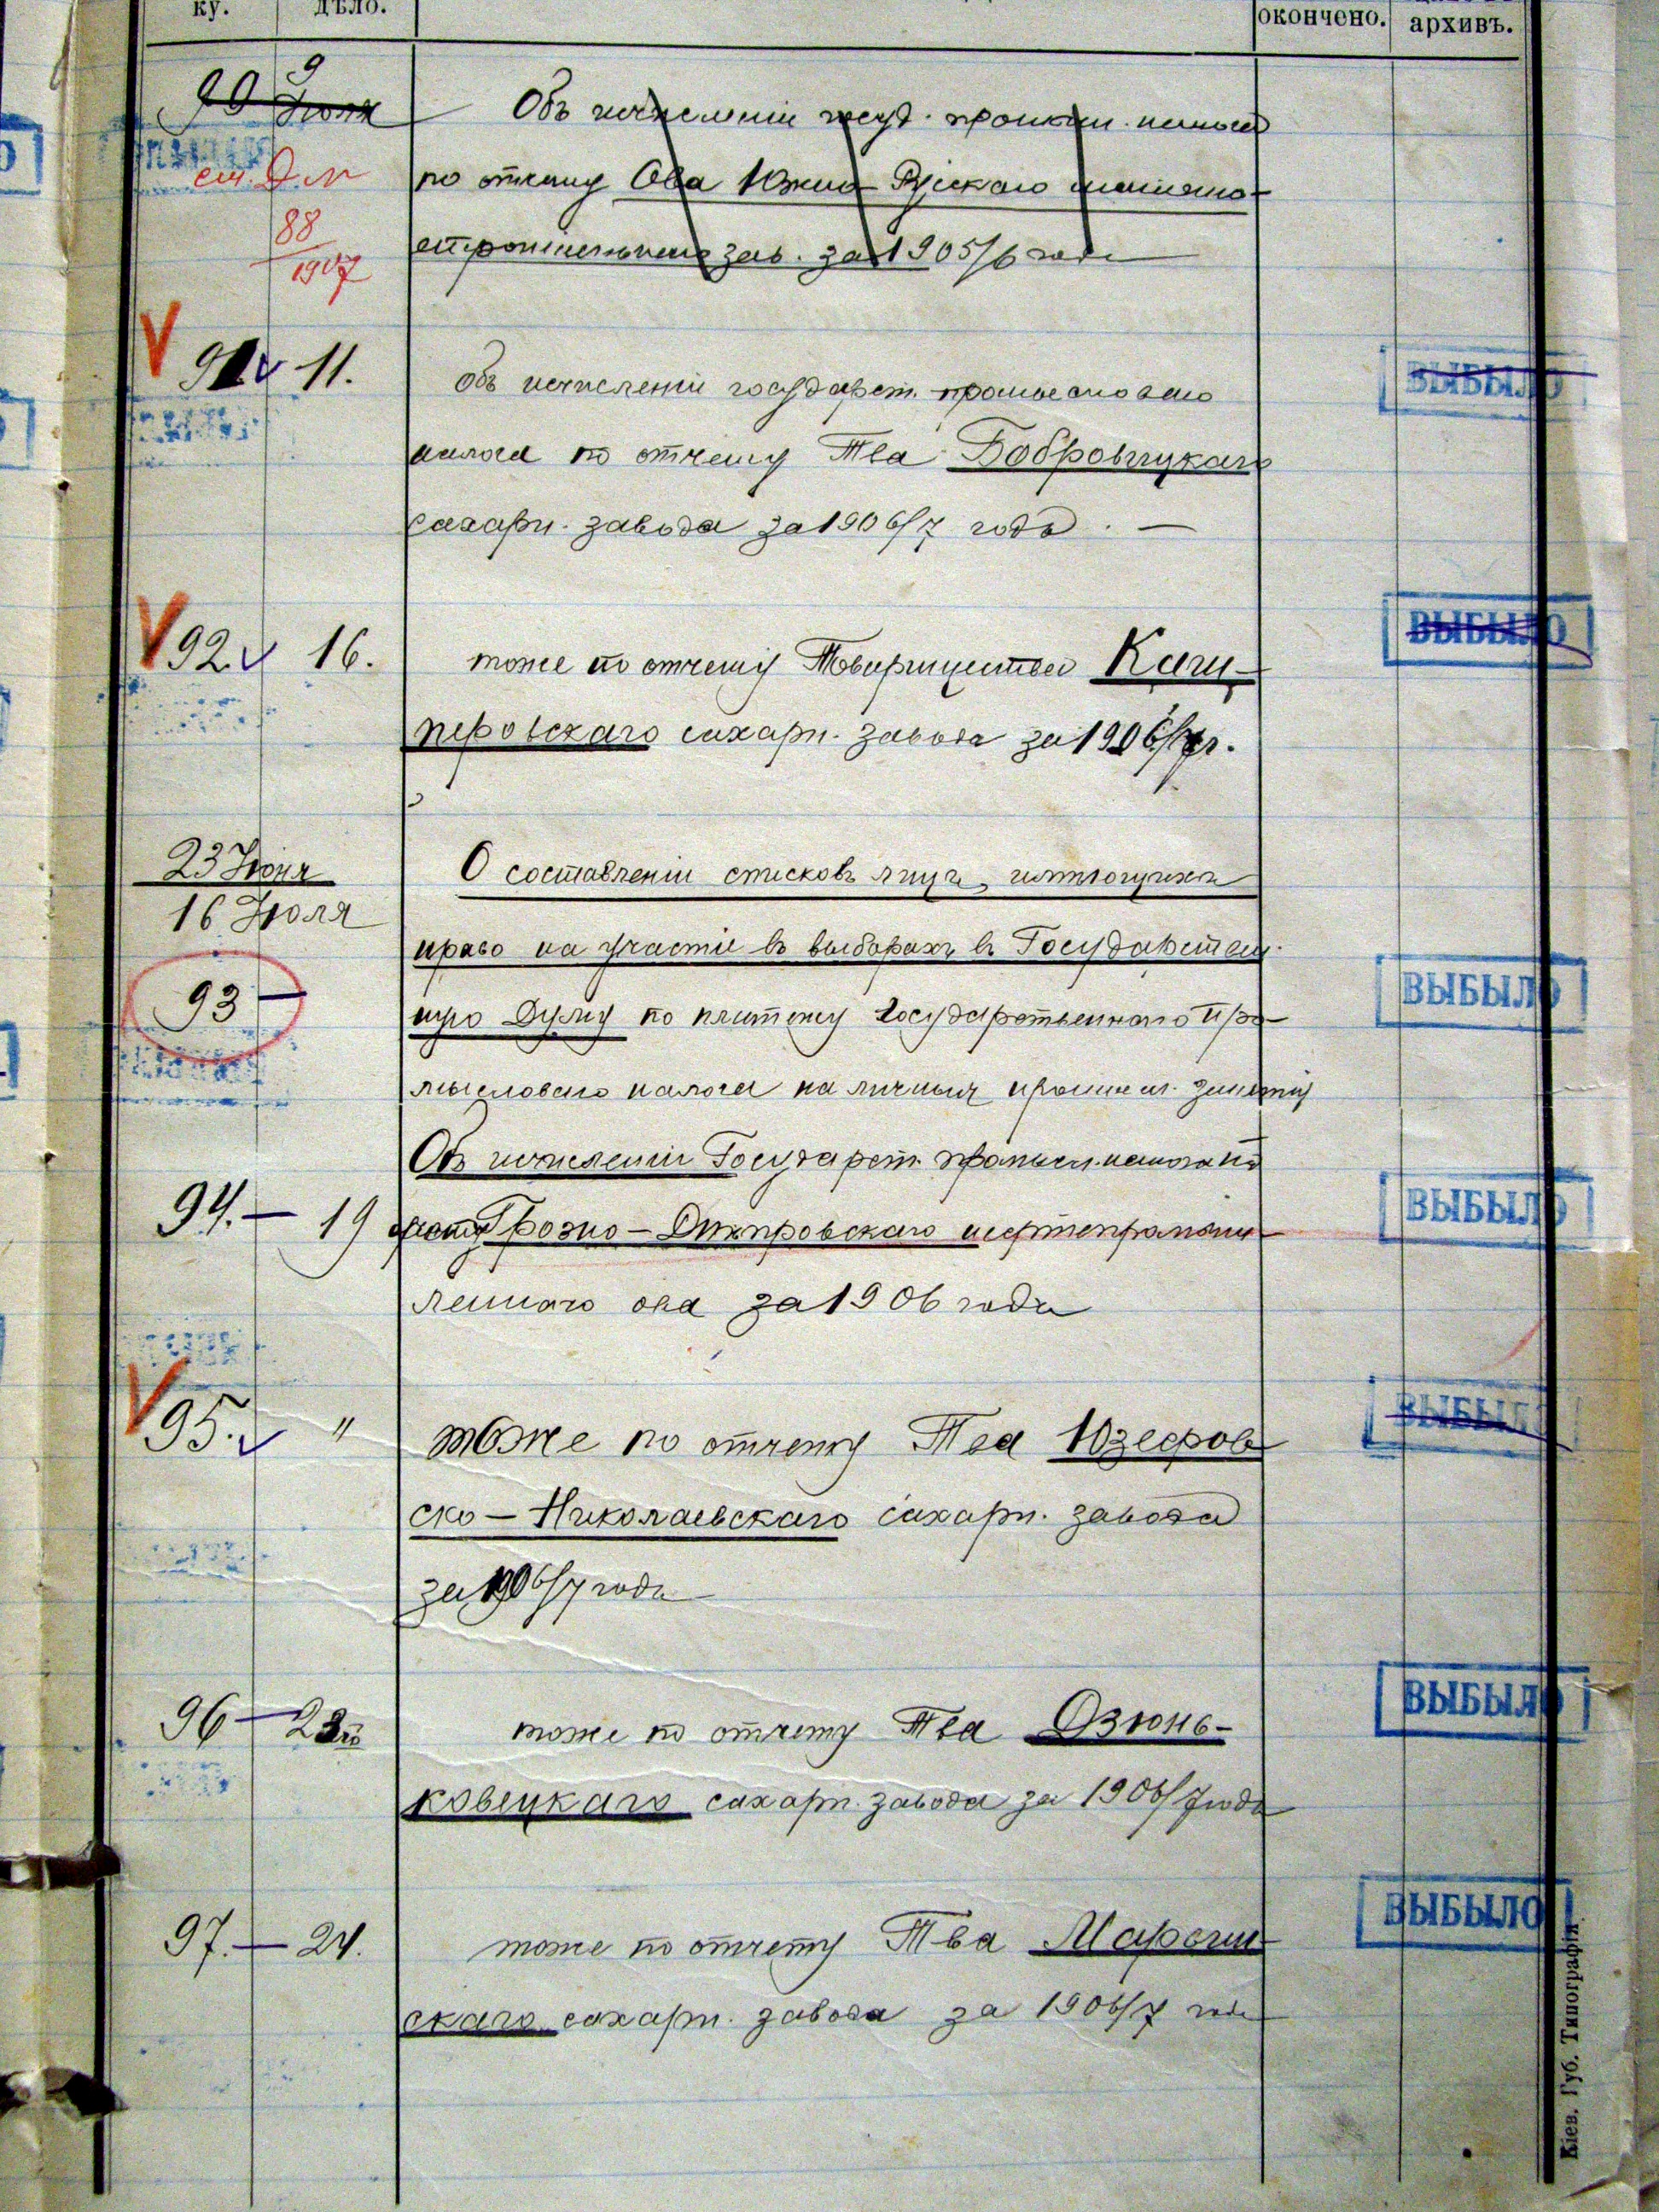 ку. дѣло. окончено. архивъ.
90 9 Іюля Объ исчисленіи госуд. промысл. налога
см. Д № по отчету О-ва Южно-Русскаго машино-
88
1907
строительнаго зав. за 1905/6 годъ
91 v 11. Объ исчисленіи государст. промысловаго ВЫБЫЛО
налога по отчету Т-ва Бобровицкаго
сахарн. завода за 1906/7 годъ. —
92. v 16. тоже по отчету Товарищества Каши- ВЫБЫЛО
перовскаго сахарн. завода за 1906/7 г.
23 Іюня О составленіи списковъ лицъ, имѣющихъ
16 Іюля
право на участіе въ выборахъ въ Государствен-
93 — ную Думу по платежу Государственнаго про- ВЫБЫЛО
мысловаго налога на личныя промысл. занятія
Объ исчисленіи Государст. промысл. налога по
94. — 19 отчету Грозно-Днѣпровскаго нефтепромыш- ВЫБЫЛО
леннаго о-ва за 1906 годъ
95. v " тоже по отчету Т-ва Юзефов- ВЫБЫЛО
ско-Николаевскаго сахарн. завода
за 1906/7 годъ
96 — тоже по отчету Т-ва Дзюнь- ВЫБЫЛО
ковецкаго сахарн. завода за 1906/7 года
97. — 24. тоже по отчету Т-ва Маріин- ВЫБЫЛО
скаго сахарн. завода за 1906/7 годъ
Кіев. Губ. Типографія